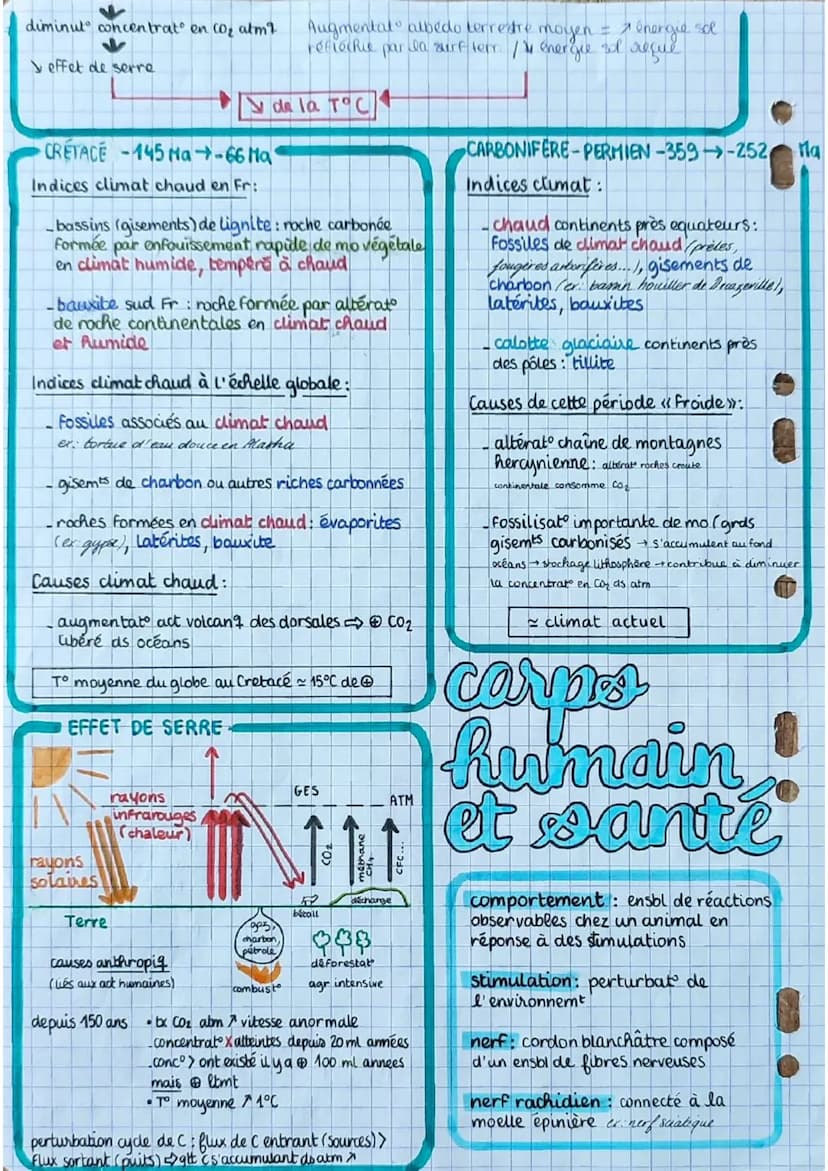 diminut° concentrat° en CO2 atmq
↘ effet de serre
Augmentat° albédo terrestre moyen = ↗ énergie sol
réfléchie par la surf terr / ↘ énergie sol reçue
↘ de la T°C
CRÉTACÉ -145 Ma → -66 Ma
Indices climat chaud en Fr :
- bassins (gisements) de lignite : roche carbonée
formée par enfouissement rapide de mo végétale
en climat humide, tempéré à chaud
- bauxite sud Fr : roche formée par altérat°
de roche continentales en climat chaud
et humide
Indices climat chaud à l'échelle globale :
- Fossiles associés au climat chaud
ex: tortue d'eau douce en Alaska
- gisemts de charbon ou autres riches carbonnées
- roches formées en climat chaud : évaporites
(ex gypse), latérites, bauxite
Causes climat chaud :
- augmentat° act volcanq des dorsales ⇒ ⊕ CO2
libéré ds océans
T° moyenne du globe au Cretacé ≃ 15°C de ⊕
CARBONIFÈRE - PERMIEN -359 → -252 Ma
Indices climat :
- chaud continents près equateurs :
Fossiles de climat chaud (prêles,
fougères arborifères...), gisements de
charbon (ex: bassin houiller de Decazeville),
latérites, bauxites
- calotte glaciaire continents près
des pôles : tillite
Causes de cette période « froide » :
- altérat° chaîne de montagnes
hercynienne : altérat° roches croute
continentale consomme CO2
- Fossilisat° importante de mo (grds
gisemts carbonisés → s'accumulent au fond
océans → stockage lithosphère → contribue à diminuer
la concentrat° en CO2 ds atm
≃ climat actuel
EFFET DE SERRE
rayons
infrarouges
(chaleur)
rayons
solaires
GES
ATM
CO2
méthane
CH4
CFC...
bétail
décharge
Terre
gaz,
charbon,
pétrole
combust°
déforestat°
agr intensive
causes anthropiq
(liés aux act humaines)
depuis 150 ans • tx CO2 atm ↗ vitesse anormale
- concentrat° X atteintes depuis 20 ml années
- conc° > ont existé il y a ⊕ 100 ml annees
mais ⊕ ltmt
• T° moyenne ↗ 1°C
perturbation cycle de C : flux de C entrant (sources) >
flux sortant (puits) ⇒ qtt C s'accumulant ds atm ↗
corps
humain
et santé
comportement : ensbl de réactions
observables chez un animal en
réponse à des stimulations
stimulation : perturbat° de
l'environnemt
nerf : cordon blanchâtre composé
d'un ensbl de fibres nerveuses
nerf rachidien : connecté à la
moelle épinière ex: nerf sciatique